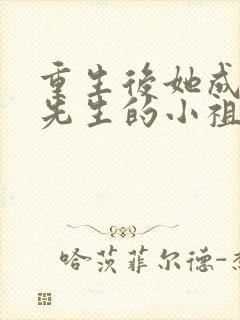 重生後她成
先生的小祖
哈茨菲尔德-杰